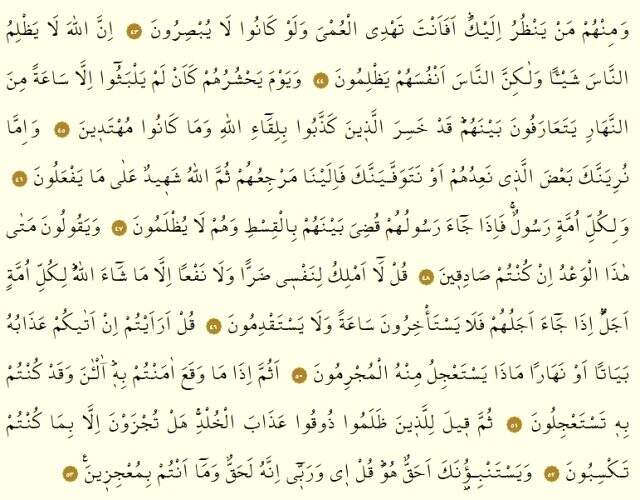 وَمِنْهُمْ مَنْ يَنْظُرُ اِلَيْكَۜ اَفَاَنْتَ تَهْدِي الْعُمْيَ وَلَوْ كَانُوا لَا يُبْصِرُونَ ﴿٤٣﴾ اِنَّ اللّٰهَ لَا يَظْلِمُ
النَّاسَ شَيْـًٔا وَلٰكِنَّ النَّاسَ اَنْفُسَهُمْ يَظْلِمُونَ ﴿٤٤﴾ وَيَوْمَ يَحْشُرُهُمْ كَاَنْ لَمْ يَلْبَثُٓوا اِلَّا سَاعَةً مِنَ
النَّهَارِ يَتَعَارَفُونَ بَيْنَهُمْۜ قَدْ خَسِرَ الَّذ۪ينَ كَذَّبُوا بِلِقَٓاءِ اللّٰهِ وَمَا كَانُوا مُهْتَد۪ينَ ﴿٤٥﴾ وَاِمَّا
نُرِيَنَّكَ بَعْضَ الَّذ۪ي نَعِدُهُمْ اَوْ نَتَوَفَّيَنَّكَ فَاِلَيْنَا مَرْجِعُهُمْ ثُمَّ اللّٰهُ شَه۪يدٌ عَلٰى مَا يَفْعَلُونَ ﴿٤٦﴾
وَلِكُلِّ اُمَّةٍ رَسُولٌۚ فَاِذَا جَٓاءَ رَسُولُهُمْ قُضِيَ بَيْنَهُمْ بِالْقِسْطِ وَهُمْ لَا يُظْلَمُونَ ﴿٤٧﴾ وَيَقُولُونَ مَتٰى
هٰذَا الْوَعْدُ اِنْ كُنْتُمْ صَادِق۪ينَ ﴿٤٨﴾ قُلْ لَٓا اَمْلِكُ لِنَفْس۪ي ضَرًّا وَلَا نَفْعًا اِلَّا مَا شَٓاءَ اللّٰهُۜ لِكُلِّ اُمَّةٍ
اَجَلٌۜ اِذَا جَٓاءَ اَجَلُهُمْ فَلَا يَسْتَأْخِرُونَ سَاعَةً وَلَا يَسْتَقْدِمُونَ ﴿٤٩﴾ قُلْ اَرَاَيْتُمْ اِنْ اَتٰيكُمْ عَذَابُهُ
بَيَاتًا اَوْ نَهَارًا مَاذَا يَسْتَعْجِلُ مِنْهُ الْمُجْرِمُونَ ﴿٥٠﴾ اَثُمَّ اِذَا مَا وَقَعَ اٰمَنْتُمْ بِه۪ۜ آٰلْـٰٔنَ وَقَدْ كُنْتُمْ
بِه۪ تَسْتَعْجِلُونَ ﴿٥١﴾ ثُمَّ ق۪يلَ لِلَّذ۪ينَ ظَلَمُوا ذُوقُوا عَذَابَ الْخُلْدِۚ هَلْ تُجْزَوْنَ اِلَّا بِمَا كُنْتُمْ
تَكْسِبُونَ ﴿٥٢﴾ وَيَسْتَنْبِؤُ۫نَكَ اَحَقٌّ هُوَۜ قُلْ ا۪ي وَرَبّ۪ٓي اِنَّهُ لَحَقٌّ وَمَٓا اَنْتُمْ بِمُعْجِز۪ينَ۟ ﴿٥٣﴾